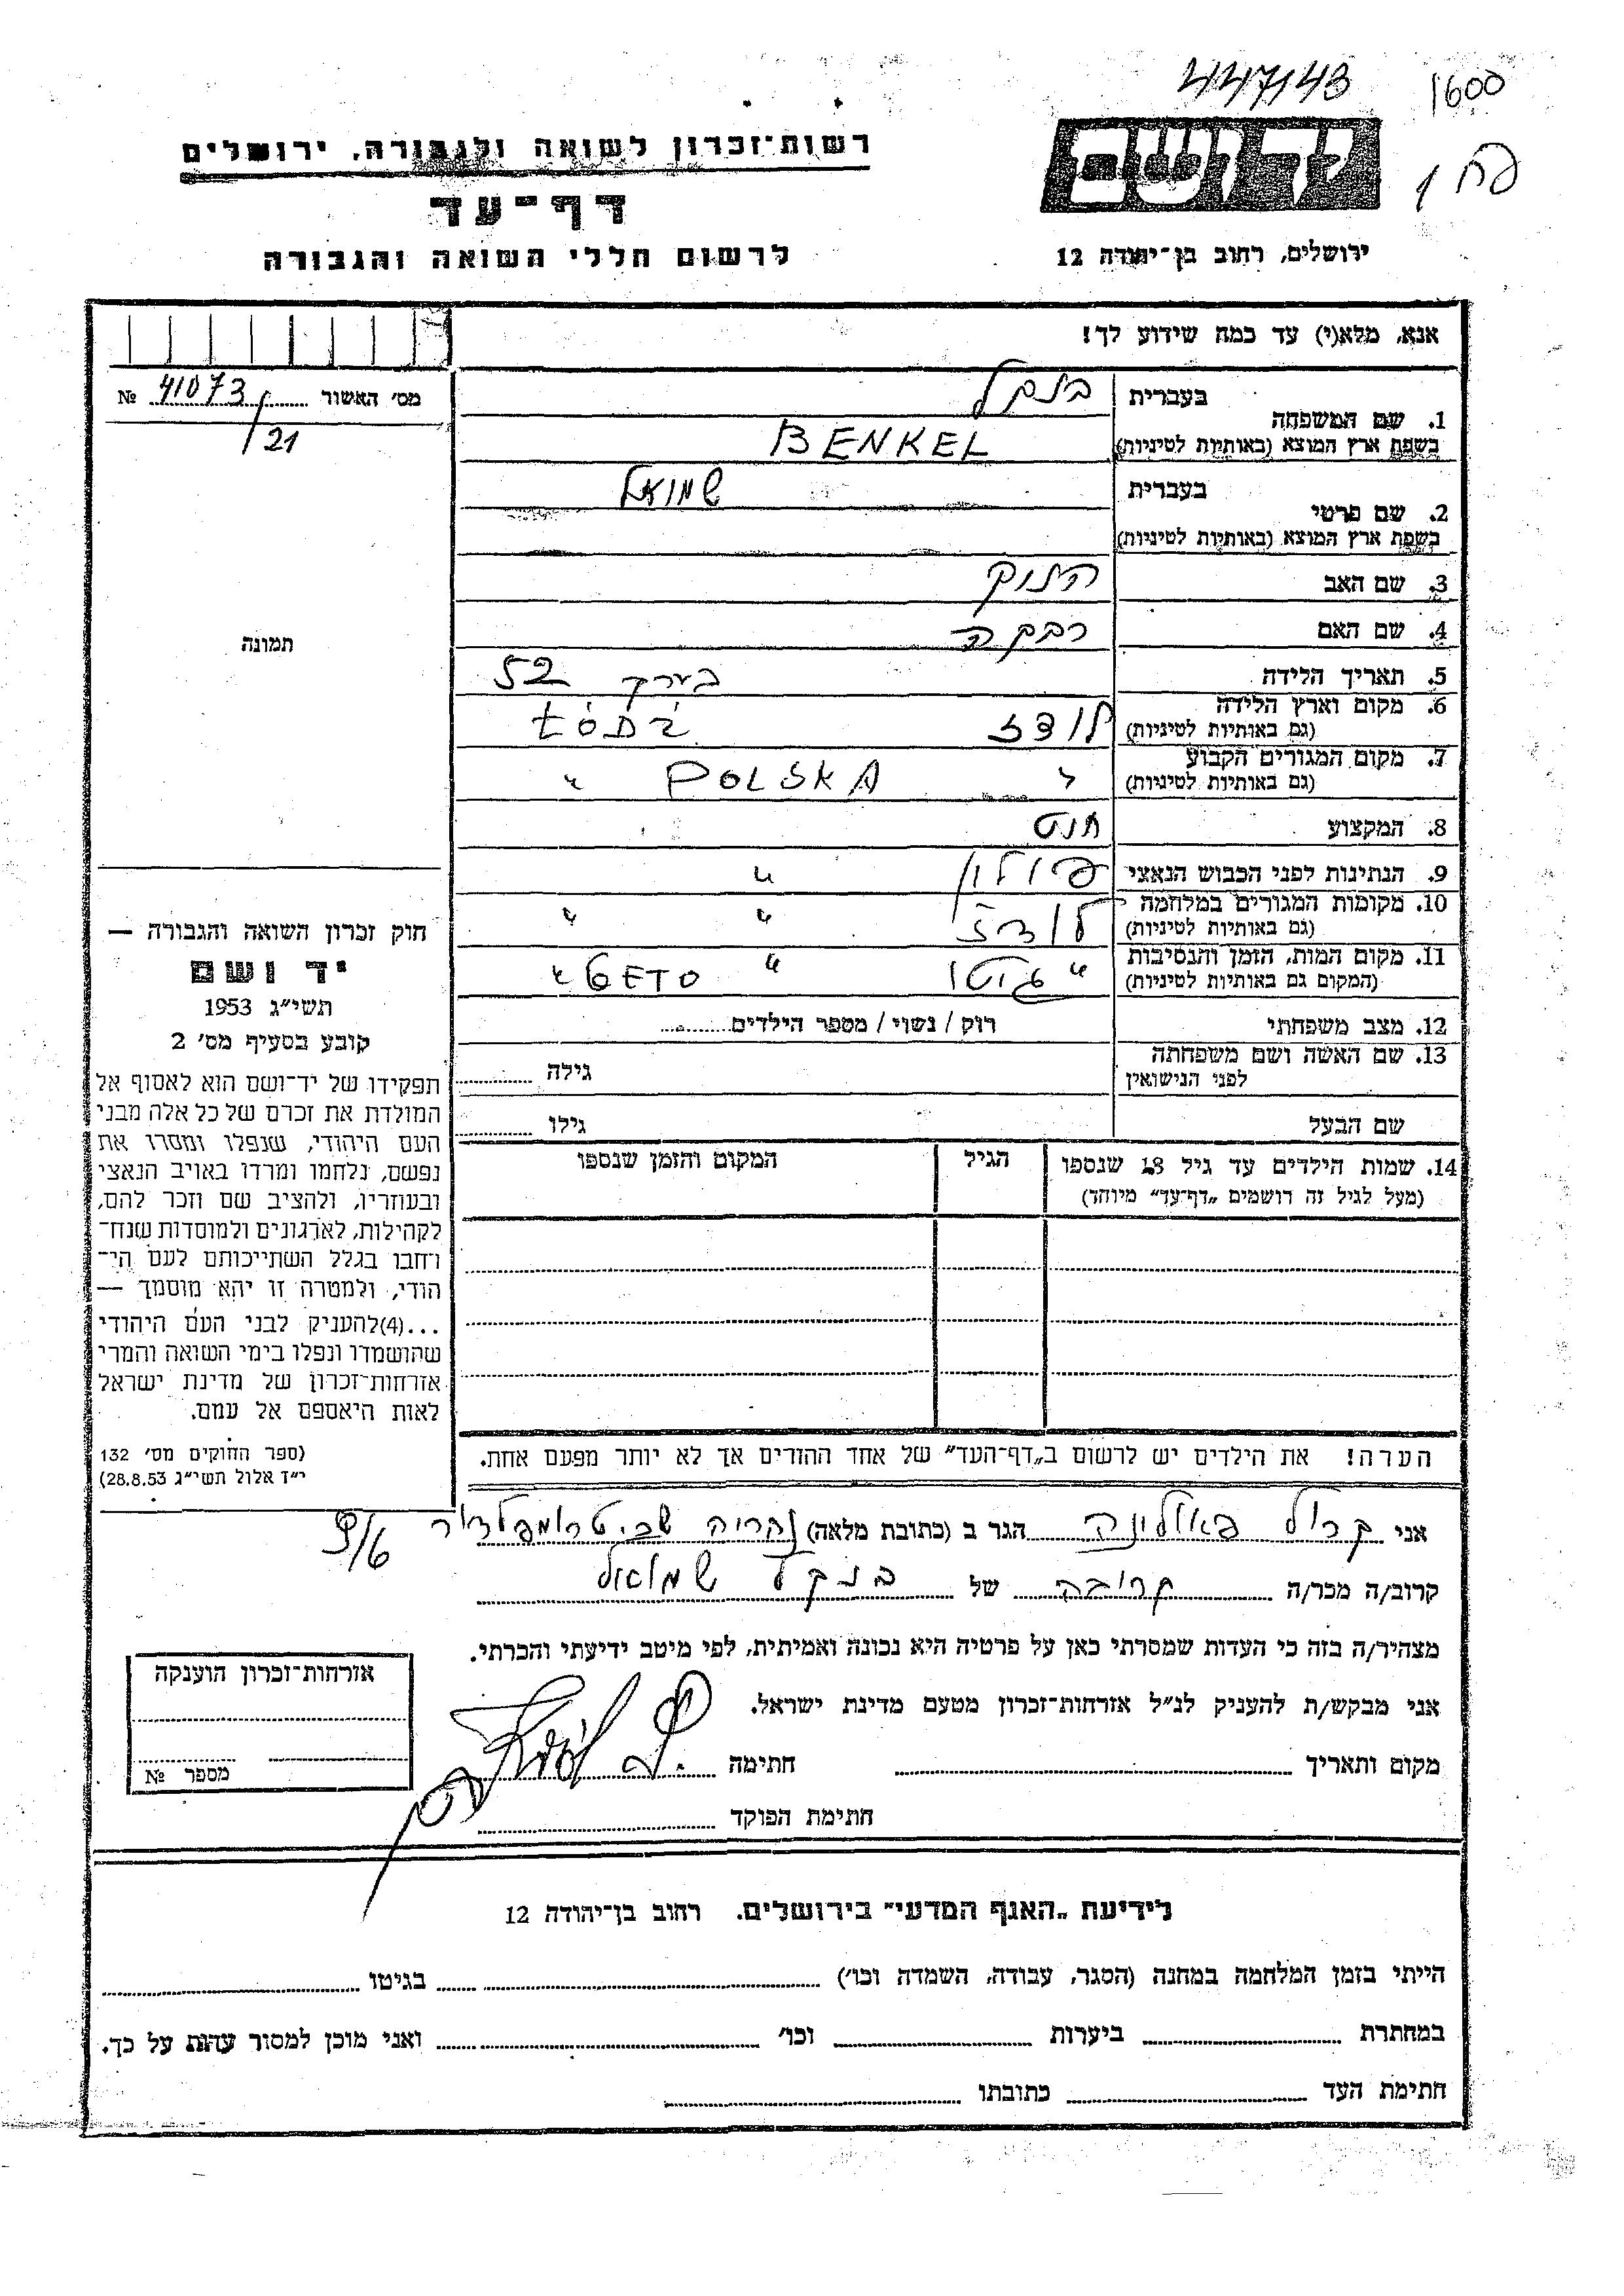 447143
1600
רשות־זכרון לשואה ולגבורה, ירושלים
יד ושם
דף־עד
לרשום חללי השואה והגבורה
ירושלים, רחוב בן־יהודה 12
אנא, מלא(י) עד כמה שידוע לך!
מס׳ האשור 41073 №
/21
תמונה
1. שם המשפחה
בעברית בנקל
בשפת ארץ המוצא (באותיות לטיניות) BENKEL
2. שם פרטי
בעברית שמואל
בשפת ארץ המוצא (באותיות לטיניות)
3. שם האב הנוך
4. שם האם רבקה
5. תאריך הלידה בערך 52
6. מקום וארץ הלידה לודז ŁÓDŹ
(גם באותיות לטיניות)
7. מקום המגורים הקבוע " POLSKA "
(גם באותיות לטיניות)
8. המקצוע
9. הנתינות לפני הכבוש הנאצי פולון "
10. מקומות המגורים במלחמה לודז " "
(גם באותיות לטיניות)
11. מקום המות, הזמן והנסיבות " גיטו " GETO "
(המקום גם באותיות לטיניות)
12. מצב משפחתי רוק / נשוי / מספר הילדים
13. שם האשה ושם משפחתה גילה
לפני הנישואין
שם הבעל גילו
14. שמות הילדים עד גיל 18 שנספו הגיל המקום והזמן שנספו
(מעל לגיל זה רושמים „דף־עד״ מיוחד)
חוק זכרון השואה והגבורה —
יד ושם
תשי״ג 1953
קובע בסעיף מס׳ 2
תפקידו של יד־ושם הוא לאסוף אל
המולדת את זכרם של כל אלה מבני
העם היהודי, שנפלו ומסרו את
נפשם, נלחמו ומרדו באויב הנאצי
ובעוזריו, ולהציב שם וזכר להם,
לקהילות, לארגונים ולמוסדות שנח־
רחבו בגלל השתייכותם לעם הי־
הודי, ולמטרה זו יהא מוסמך —
...(4)להעניק לבני העם היהודי
שהושמדו ונפלו בימי השואה והמרי
אזרחות־זכרון של מדינת ישראל
לאות היאספם אל עמם.
(ספר החוקים מס׳ 132
י״ז אלול תשי״ג 28.8.53)
הערה! את הילדים יש לרשום ב„דף־העד״ של אחד ההורים אך לא יותר מפעם אחת.
אני קרול פאולינה הגר ב (כתובת מלאה) נהריה שכ. טרומפלדור
9/6
קרוב/ה מכר/ה קרובה של בנקל שמואל
מצהיר/ה בזה כי העדות שמסרתי כאן על פרטיה היא נכונה ואמיתית, לפי מיטב ידיעתי והכרתי.
אני מבקש/ת להעניק לנ״ל אזרחות־זכרון מטעם מדינת ישראל.
מקום ותאריך חתימה
חתימת הפוקד
אזרחות־זכרון הוענקה
מספר №
לידיעת „האגף המדעי״ בירושלים. רחוב בן־יהודה 12
הייתי בזמן המלחמה במחנה (הסגר, עבודה, השמדה וכו׳) בגיטו
במחתרת ביערות וכו׳ ואני מוכן למסור עדות על כך.
חתימת העד כתובתו